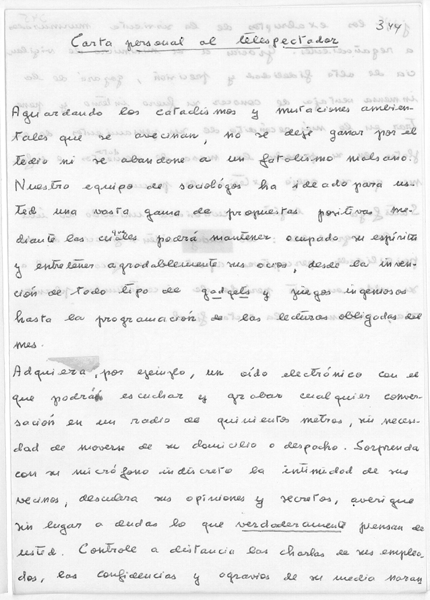 344
Carta personal al telespectador
Aguardando los cataclismos y mutaciones ambien-
tales que se avecinan, no se deje ganar por el
tedio ni se abandone a un fatalismo malsano.
Nuestro equipo de sociólogos ha ideado para us-
ted una vasta gama de propuestas positivas me-
diante las cuales podrá mantener ocupado su espíritu
y entretener agradablemente sus ocios, desde la inven-
ción de todo tipo de gadgets y juegos ingeniosos
hasta la programación de las lecturas obligadas del
mes.
Adquiera, por ejemplo, un oído electrónico con el
que podrá escuchar y grabar cualquier conver-
sación en un radio de quinientos metros, sin necesi-
dad de moverse de su domicilio o despacho. Sorprenda
con su micrófono indiscreto la intimidad de sus
vecinos, descubra sus opiniones y secretos, averigüe
sin lugar a dudas lo que verdaderamente piensan de
usted. Controle a distancia las charlas de sus emplea-
dos, las confidencias y agravios de su media naran